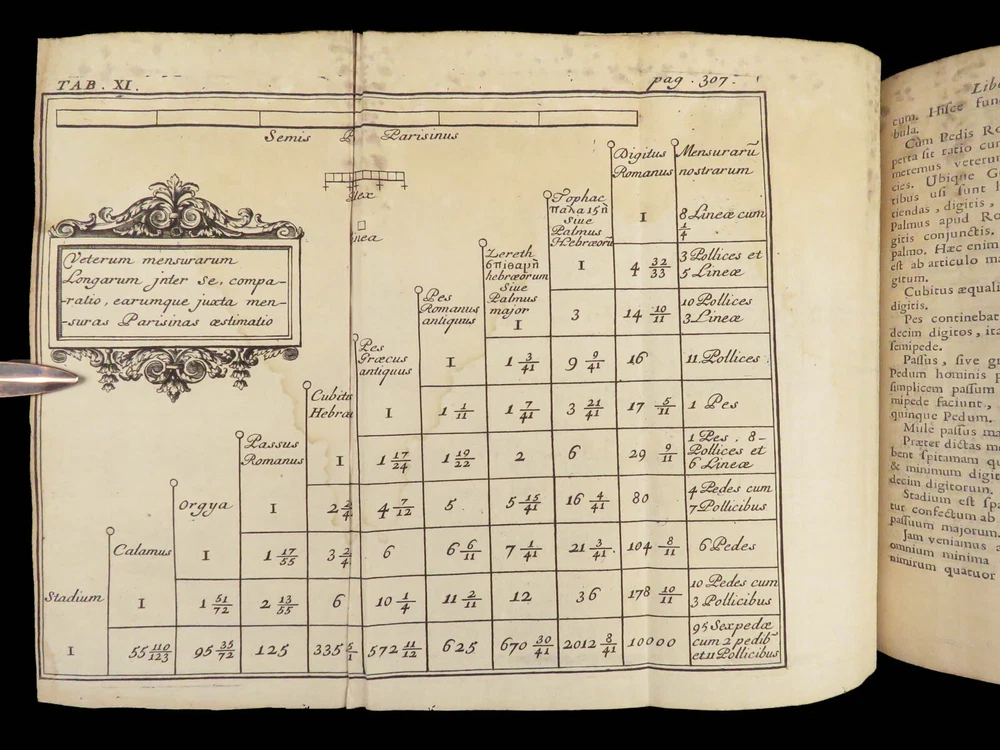 TAB. XI.
pag. 307.
Semis P Parisinus
lex
inea
Veterum mensurarum
Longarum jnter se, compa-
-ratio, earumque juxta men-
-suras Parisinas æstimatio
Digitus
Romanus
Mensurarũ
nostrarum
1
8 Lineæ cum
1/4
Tophac
Siue
Palmus
Hebræorũ
1
4 32/33
3 Pollices et
5 Lineæ
Zereth
hebræorum
Siue
Palmus
major
1
3
14 10/11
10 Pollices
3 Lineæ
Pes
Romanus
antiquus
1
1 3/41
9 9/41
16
11 Pollices
Pes
Græcus
antiquus
1
1 1/11
1 7/41
3 21/41
17 5/11
1 Pes
Cubit
Hebra
1
1 17/24
1 19/22
2
6
29 9/11
1 Pes. 8-
Pollices et
6 Lineæ
Passus
Romanus
1
2
4 7/12
5
5 15/41
16 4/41
80
4 Pedes cum
7 Pollicibus
Orgya
1
1 17/55
3
6
6 6/11
7 1/41
21 3/41
104 8/11
6 Pedes
Calamus
1
1 51/72
2 13/55
6
10 1/4
11 2/11
12
36
178 10/11
10 Pedes cum
3 Pollicibus
Stadium
1
55 110/123
95 35/72
125
335
572 11/12
625
670 30/41
2012 8/41
10000
95 Sexpedæ
cum 2 pedib
et 11 Pollicibus
Libe
cum. Hisce fun
bula.
Cùm Pedis Ro
perta sit ratio cum
metemus veterum
cies. Ubique G
tibus usi sunt
tiendas, digitis,
Palmus apud Ro
gitis conjunctis.
palmo. Hæc enim
est ab articulo ma
gitum.
Cubitus æquali
digitis.
Pes continebat
decim digitos, ita
semipede.
Passus, sive gr
Pedum hominis p
simplicem passum
mipede faciunt,
quinque Pedum.
Mule passus ma
Præter dictas m
bent spitamam qu
& minimum digit
decim digitorum.
Stadium est spa
tur confectum ab
passuum majorum.
Jam veniamus a
omnium minima
nimirum quatuor